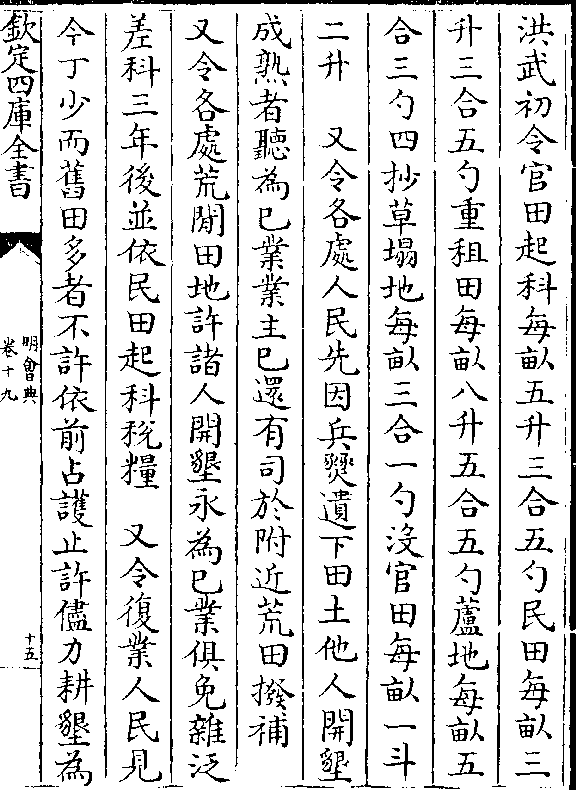 洪武初令官田起科每畝五升三合五勺民田每畝三
升三合五勺重租田每畝八升五合五勺蘆地每畝五
合三勺四抄草塌地每畝三合一勺沒官田每畝一斗
二升　又令各處人民先因兵燹遺下田土他人開墾
成熟者聽為已業業主已還有司於附近荒田撥補
又令各處荒閒田地許諸人開墾永為已業俱免雜泛
差科三年後並依民田起科稅糧　又令復業人民見
今丁少而舊田多者不許依前占護止許儘力耕墾為
欽定四庫全書
明會典
卷十九
十五